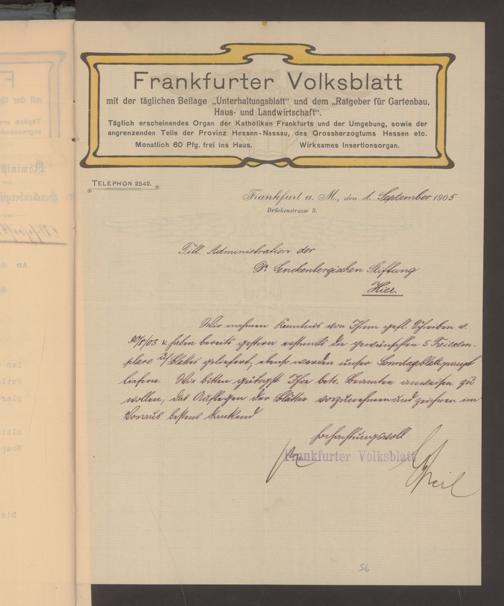 Frankfurter Volksblatt
mit der täglichen Beilage „Unterhaltungsblatt" und dem „Ratgeber für Gartenbau,
Haus- und Landwirtschaft".
Täglich erscheinendes Organ der Katholiken Frankfurts und der Umgebung, sowie der
angrenzenden Teile der Provinz Hessen-Nassau, des Grossherzogtums Hessen etc.
Monatlich 60 Pfg. frei ins Haus. Wirksames Insertionsorgan.
TELEPHON 2542.
Frankfurt a. M., den 1. September 1905
Brückenstrasse 3.
Titl. Administration der
Dr. Senckenbergischen Stiftung
Hier.
Wir nahmen Kenntnis von Ihrem gefl. Schreiben v.
haben bereits gestern erstmals die gewünschten 5 Exem-
plare geliefert, ebenso werden unser Sonntagsblatt prompt
liefern. Wir bitten gütigst Ihre betr. Beamten anweisen zu
wollen, das Auflegen der Blätter vorzunehmen und zeichnen im
Voraus bestens dankend
Hochachtungsvoll
Frankfurter Volksblatt
56